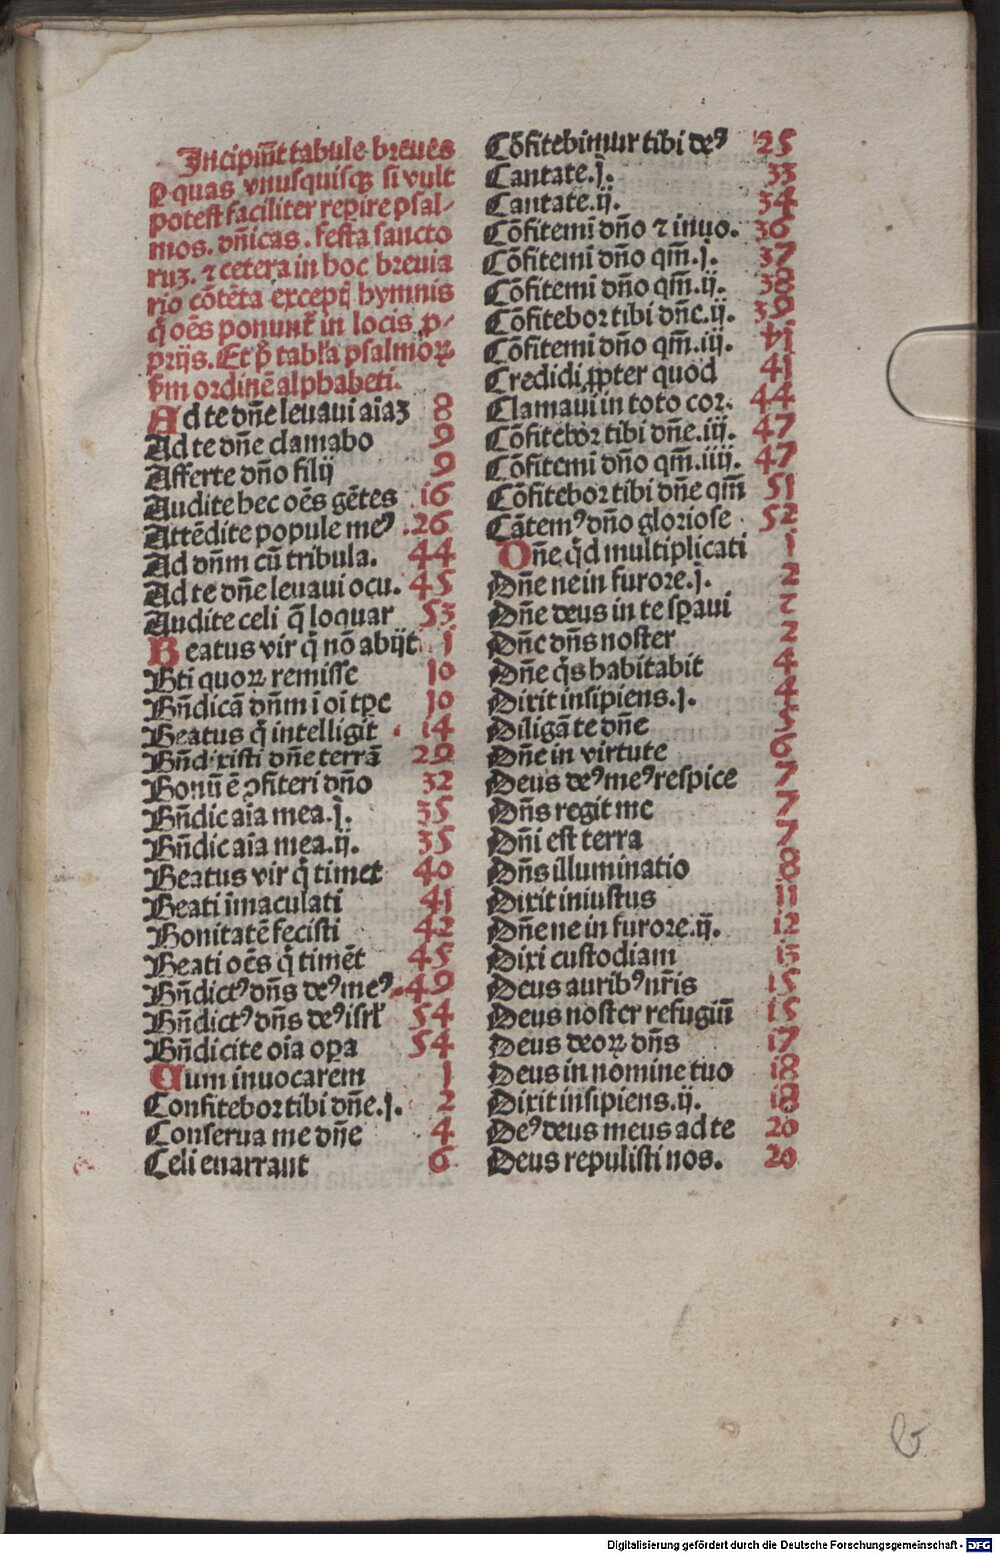 Incipiūt tabule breues
ꝑ quas vnusquisqꝫ si vult
potest faciliter reꝑire psal⸗
mos. dñicas. festa sancto
ruꝫ. ⁊ cetera in hoc breuia
rio cōtēta exceptꝭ hymnis
q̄ oēs ponunt᷑ in locis ꝓ⸗
prijs. Et p̄ tabl̕a psalmoꝝ
ẜm ordinē alphabeti.
Ad te dñe leuaui aīaꝫ 8
Ad te dñe clamabo 9
Afferte dño filij 9
Audite hec oēs gētes 16
Attēdite popule meꝰ .26
Ad dñm cū tribula. 44
Ad te dñe leuaui ocu. 45
Audite celi q̄ loquar 53
Beatus vir q̄ nō abijt 1
Bti quoꝝ remisse 10
Bñdicā dñm ī oī tꝑe 10
Beatus q̄ intelligit 14
Bñdixisti dñe terrā 29
Bonū ē ꝯfiteri dño 32
Bñdic aīa mea.j. 35
Bñdic aīa mea.ij. 35
Beatus vir q̄ timet 40
Beati īmaculati 41
Bonitatē fecisti 42
Beati oēs q̄ timēt 45
Bñdictꝰ dñs deꝰ meꝰ 49
Bñdictꝰ dñs deꝰ isrl̕ 54
Bñdicite oīa oꝑa 54
Cum inuocarem 1
Confitebor tibi dñe.j. 2
Conserua me dñe 4
Celi enarrant 6
Cōfitebimur tibi deꝰ 25
Cantate.j. 33
Cantate.ij. 34
Cōfitemī dño ⁊ inuo. 36
Cōfitemī dño qm̄.j. 37
Cōfitemī dño qm̄.ij. 38
Cōfitebor tibi dñe.ij. 39
Cōfitemī dño qm̄.iij. 41
Credidi ꝓpter quod 41
Clamaui in toto cor. 44
Cōfitebor tibi dñe.iij. 47
Cōfitemī dño qm̄.iiij. 47
Cōfitebor tibi dñe qm̄ 51
Cātemꝰ dño gloriose 52
Dñe q̇d multiplicati 1
Dñe ne in furore.j. 2
Dñe deus in te sꝑaui 2
Dñe dñs noster 2
Dñe q̇s habitabit 4
Dixit insipiens.j. 4
Diligā te dñe 5
Dñe in virtute 6
Deus deꝰ meꝰ respice 7
Dñs regit me 7
Dñi est terra 7
Dñs illuminatio 8
Dixit iniustus 11
Dñe ne in furore.ij. 12
Dixi custodiam 13
Deus auribꝰ nr̄is 15
Deus noster refugiū 15
Deus deoꝝ dñs 17
Deus in nomine tuo 18
Dixit insipiens.ij. 18
Deꝰ deus meus ad te 20
Deus repulisti nos. 20
Digitalisierung gefördert durch die Deutsche Forschungsgemeinschaft - DFG